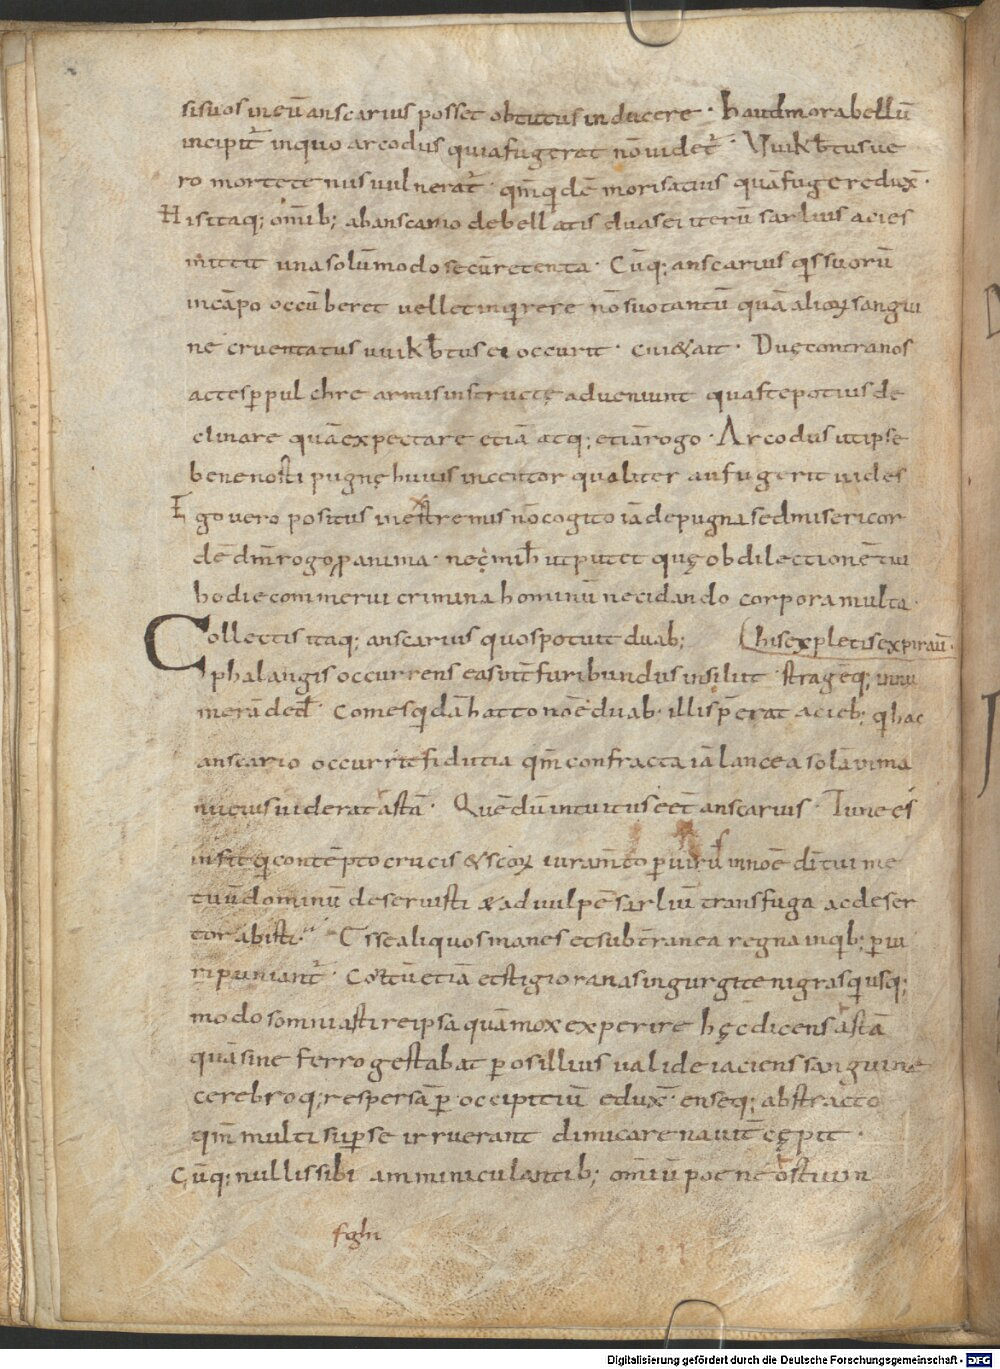 sisuos incū anscarius posset obtutus inducere · haud mora bellū
incipit̄ inquo arcodus quia fugerat nō uidet̄ · Vuikb̄tus ue
ro mortetenus uulnerat̄ · qm̄ qidē morisatius quā fugere dux̄ ·
Hisitaq; om̄ib; abanscario debellatis duas ei iterū sarlius acies
mittit una solūmodo secū retenta · Cūq; anscarius qis suorū
incāpo occūberet uellet inqirere nō suo tantū quā alioꝝ sangui
ne cruentatus uuikb̄tus ei occurit · cui & ait · Duę contranos
acies ꝑpulchre armis instructę adueniunt quas te potius de
clinare quā expectare etiā atq; etiā rogo · Arcodus ut ipse
bene nosti pugnę huius incentor qualiter aufugerit uides
Ego uero positus inextremis nō cogito iā depugna sed misericor
dē dm̄ rogo ꝓ anima · neę mih̄ utputet quę ob dilectionē tui
hodie commerui crimina hominū necidando corpora multa ·
Collectis itaq; anscarius quos potuit duab; his expletis expirauī ·
phalangis occurrens eas inīt furibundus insiliit stragēq; innu
merā dedit̄ · Comes qidā hatto noē duab· illis p̄erat acieb; qi hac
anscario occurrit fiditia qm̄ confracta iā lancea solā inma
nu eius uiderat astā · Quē dū intuitus eēt anscarius · Tune es
infit qi contēpto crucis & scoꝝ iuram̄to ꝑ uirū innoē di tui me
tuū dominū deseruisti & ad uulpē sarliū transfuga ac deser
tor abisti · Esse aliquos manes et subt̄ranea regna inqib; ꝑiu
ri puniant̄ · Cottū etiā et stigio ranas ingurgite nigras qi usq;
modo somniasti reipsa quā mox experire hęc dicens astā
quā sine ferro gestabat ꝑ os illius ualide iaciens sanguine
cerebroq; respersā ꝑ occipitiū edux̄ · enseq; abstracto
qm̄ multi sup se irruerant dimicare nauit̄ cępit ·
Cūq; nullis sibi amminiculantib; om̄iū pot ne ostium
fghi
Digitalisierung gefördert durch die Deutsche Forschungsgemeinschaft - DFG